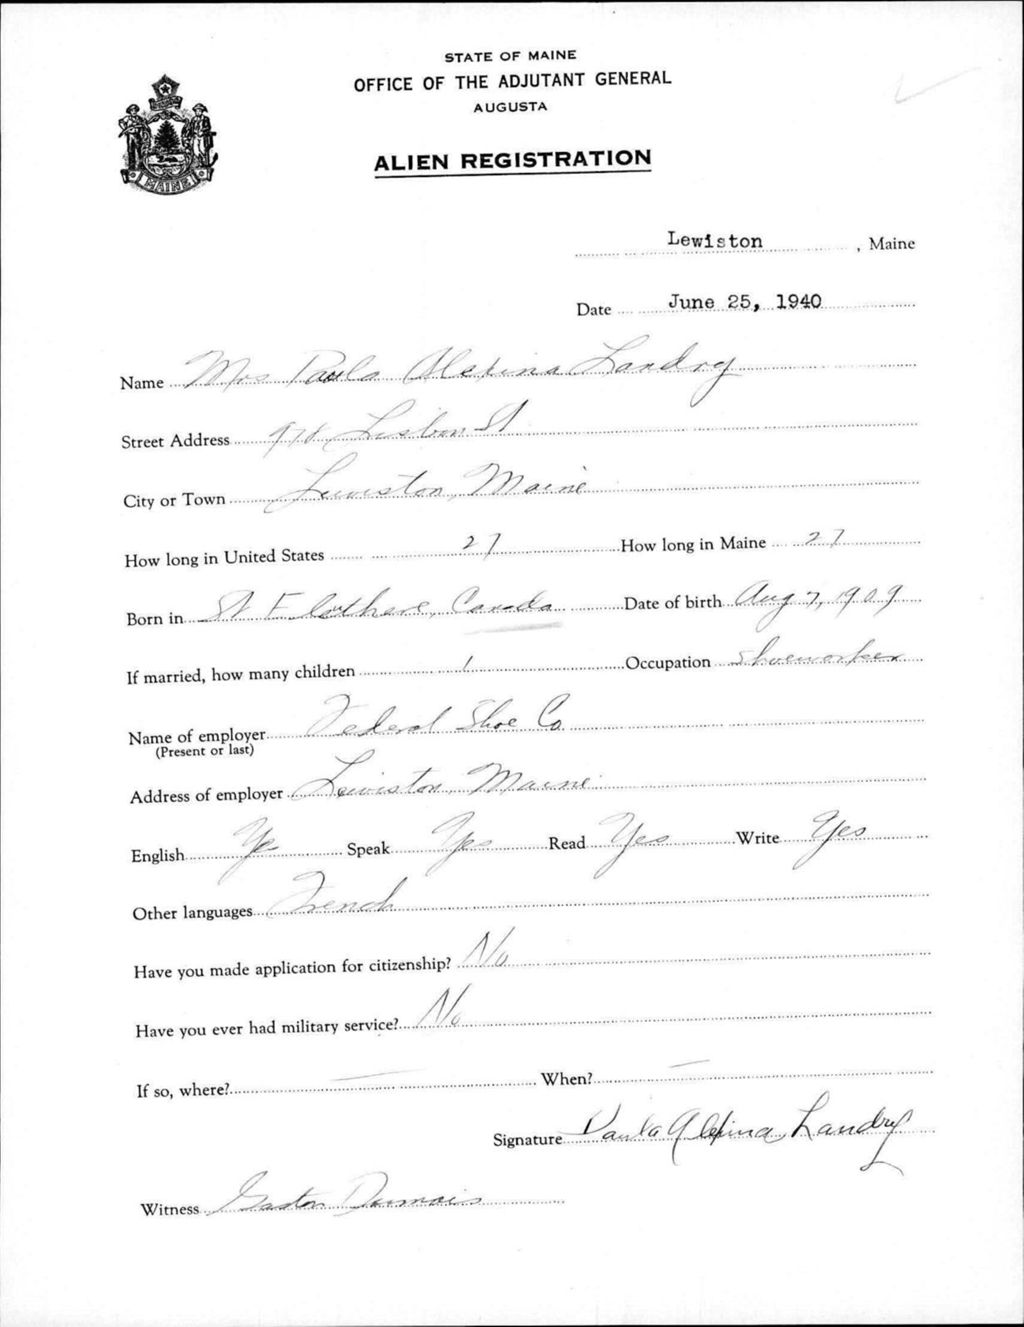 STATE OF MAINE
OFFICE OF THE ADJUTANT GENERAL
AUGUSTA
MAINE
ALIEN REGISTRATION
Lewiston, Maine
Date June 25, 1940
Name Mrs Paula Alexina Landry
Street Address 978 Lisbon St
City or Town Lewiston, Maine
How long in United States 27 How long in Maine 27
Born in St Canada Date of birth Aug 7, 1909
If married, how many children 1 Occupation Shoeworker
Name of employer Federal Shoe Co
(Present or last)
Address of employer Lewiston, Maine
English Yes Speak Yes Read Yes Write Yes
Other languages French
Have you made application for citizenship? No
Have you ever had military service? No
If so, where? — When? —
Signature Paula Alexina Landry
Witness Gaston Dumais